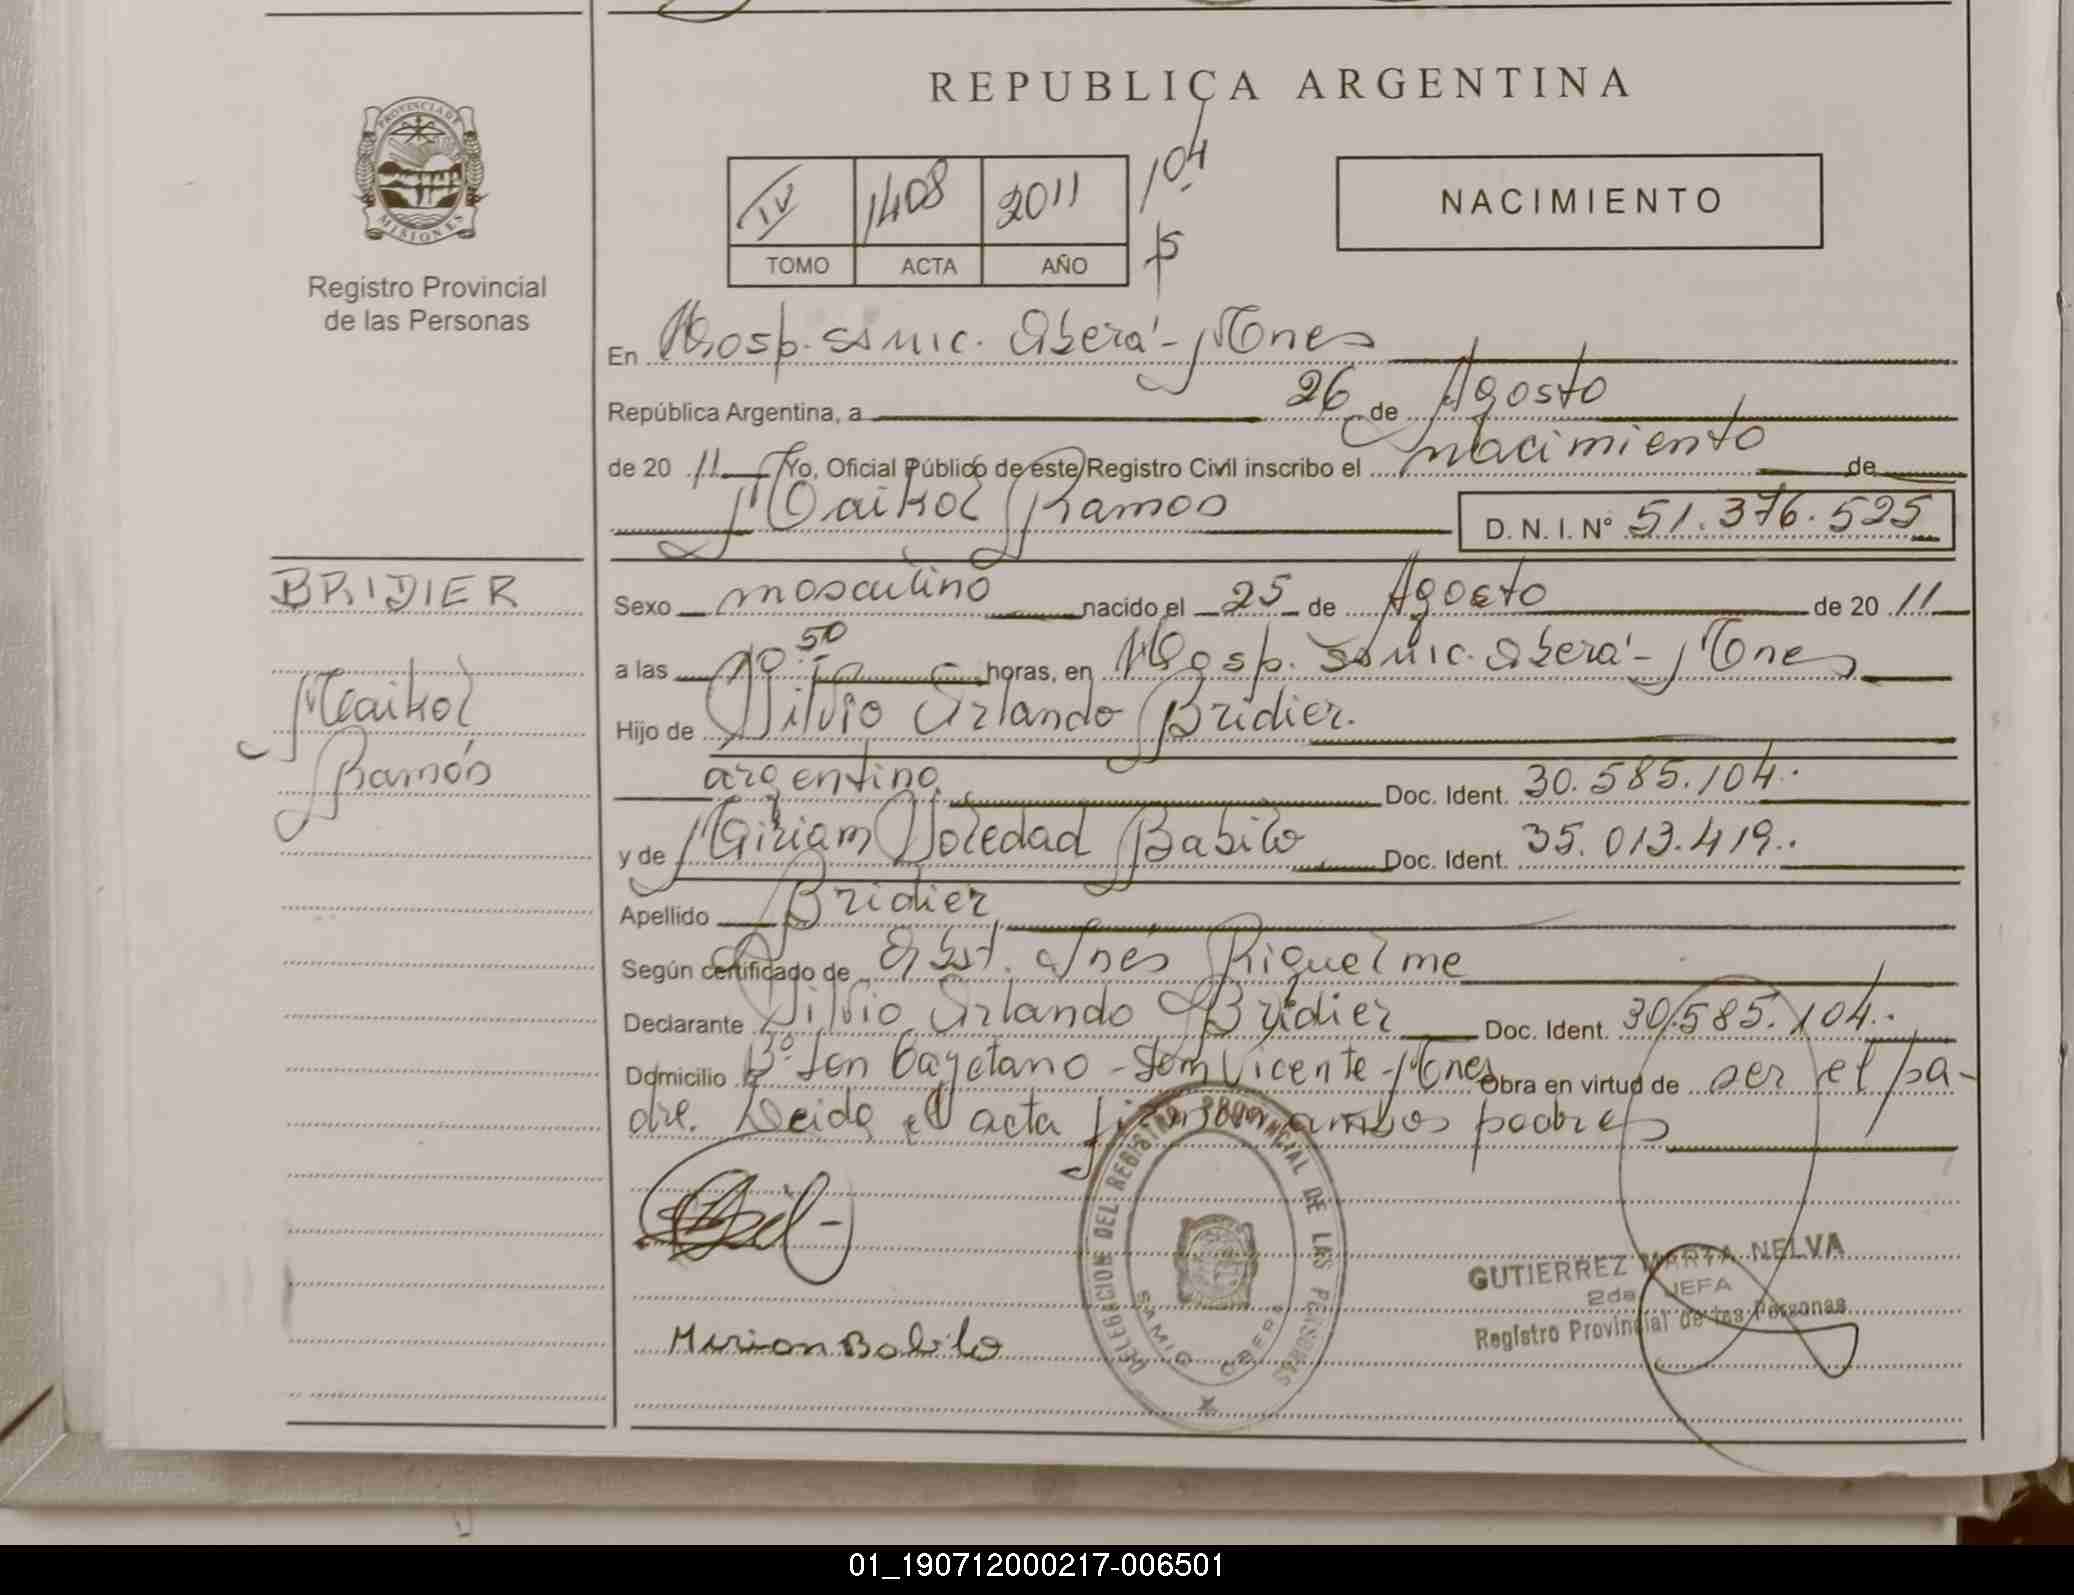 REPUBLICA ARGENTINA
PROVINCIA DE MISIONES
Registro Provincial
de las Personas
IV 1408 2011 104
TOMO ACTA AÑO
NACIMIENTO
En Hosp. Samic. Oberá - Mnes
República Argentina, a 26 de Agosto
de 20 11 Yo, Oficial Público de este Registro Civil inscribo el nacimiento de
Maikol Ramos D. N. I. Nº 51.376.525
BRIDIER
Maikol
Ramos
Sexo masculino nacido el 25 de Agosto de 20 11
a las 10.50 horas, en Hosp. Samic. Oberá - Mnes
Hijo de Silvio Orlando Bridier.
argentino Doc. Ident. 30.585.104.
y de Miriam Soledad Babilo Doc. Ident. 35.013.419.
Apellido Bridier
Según certificado de Obst. Inés Riquelme
Declarante Silvio Orlando Bridier Doc. Ident. 30.585.104.
Domicilio Bº San Cayetano - San Vicente - Mnes Obra en virtud de ser el pa-
dre. Leida el acta firman ambos padres
DELEGACION DEL REGISTRO PROVINCIAL DE LAS PERSONAS
SAMIC OBERA
GUTIERREZ MARTA NELVA
2da. JEFA
Registro Provincial de las Personas
Mirian Babilo
01_190712000217-006501